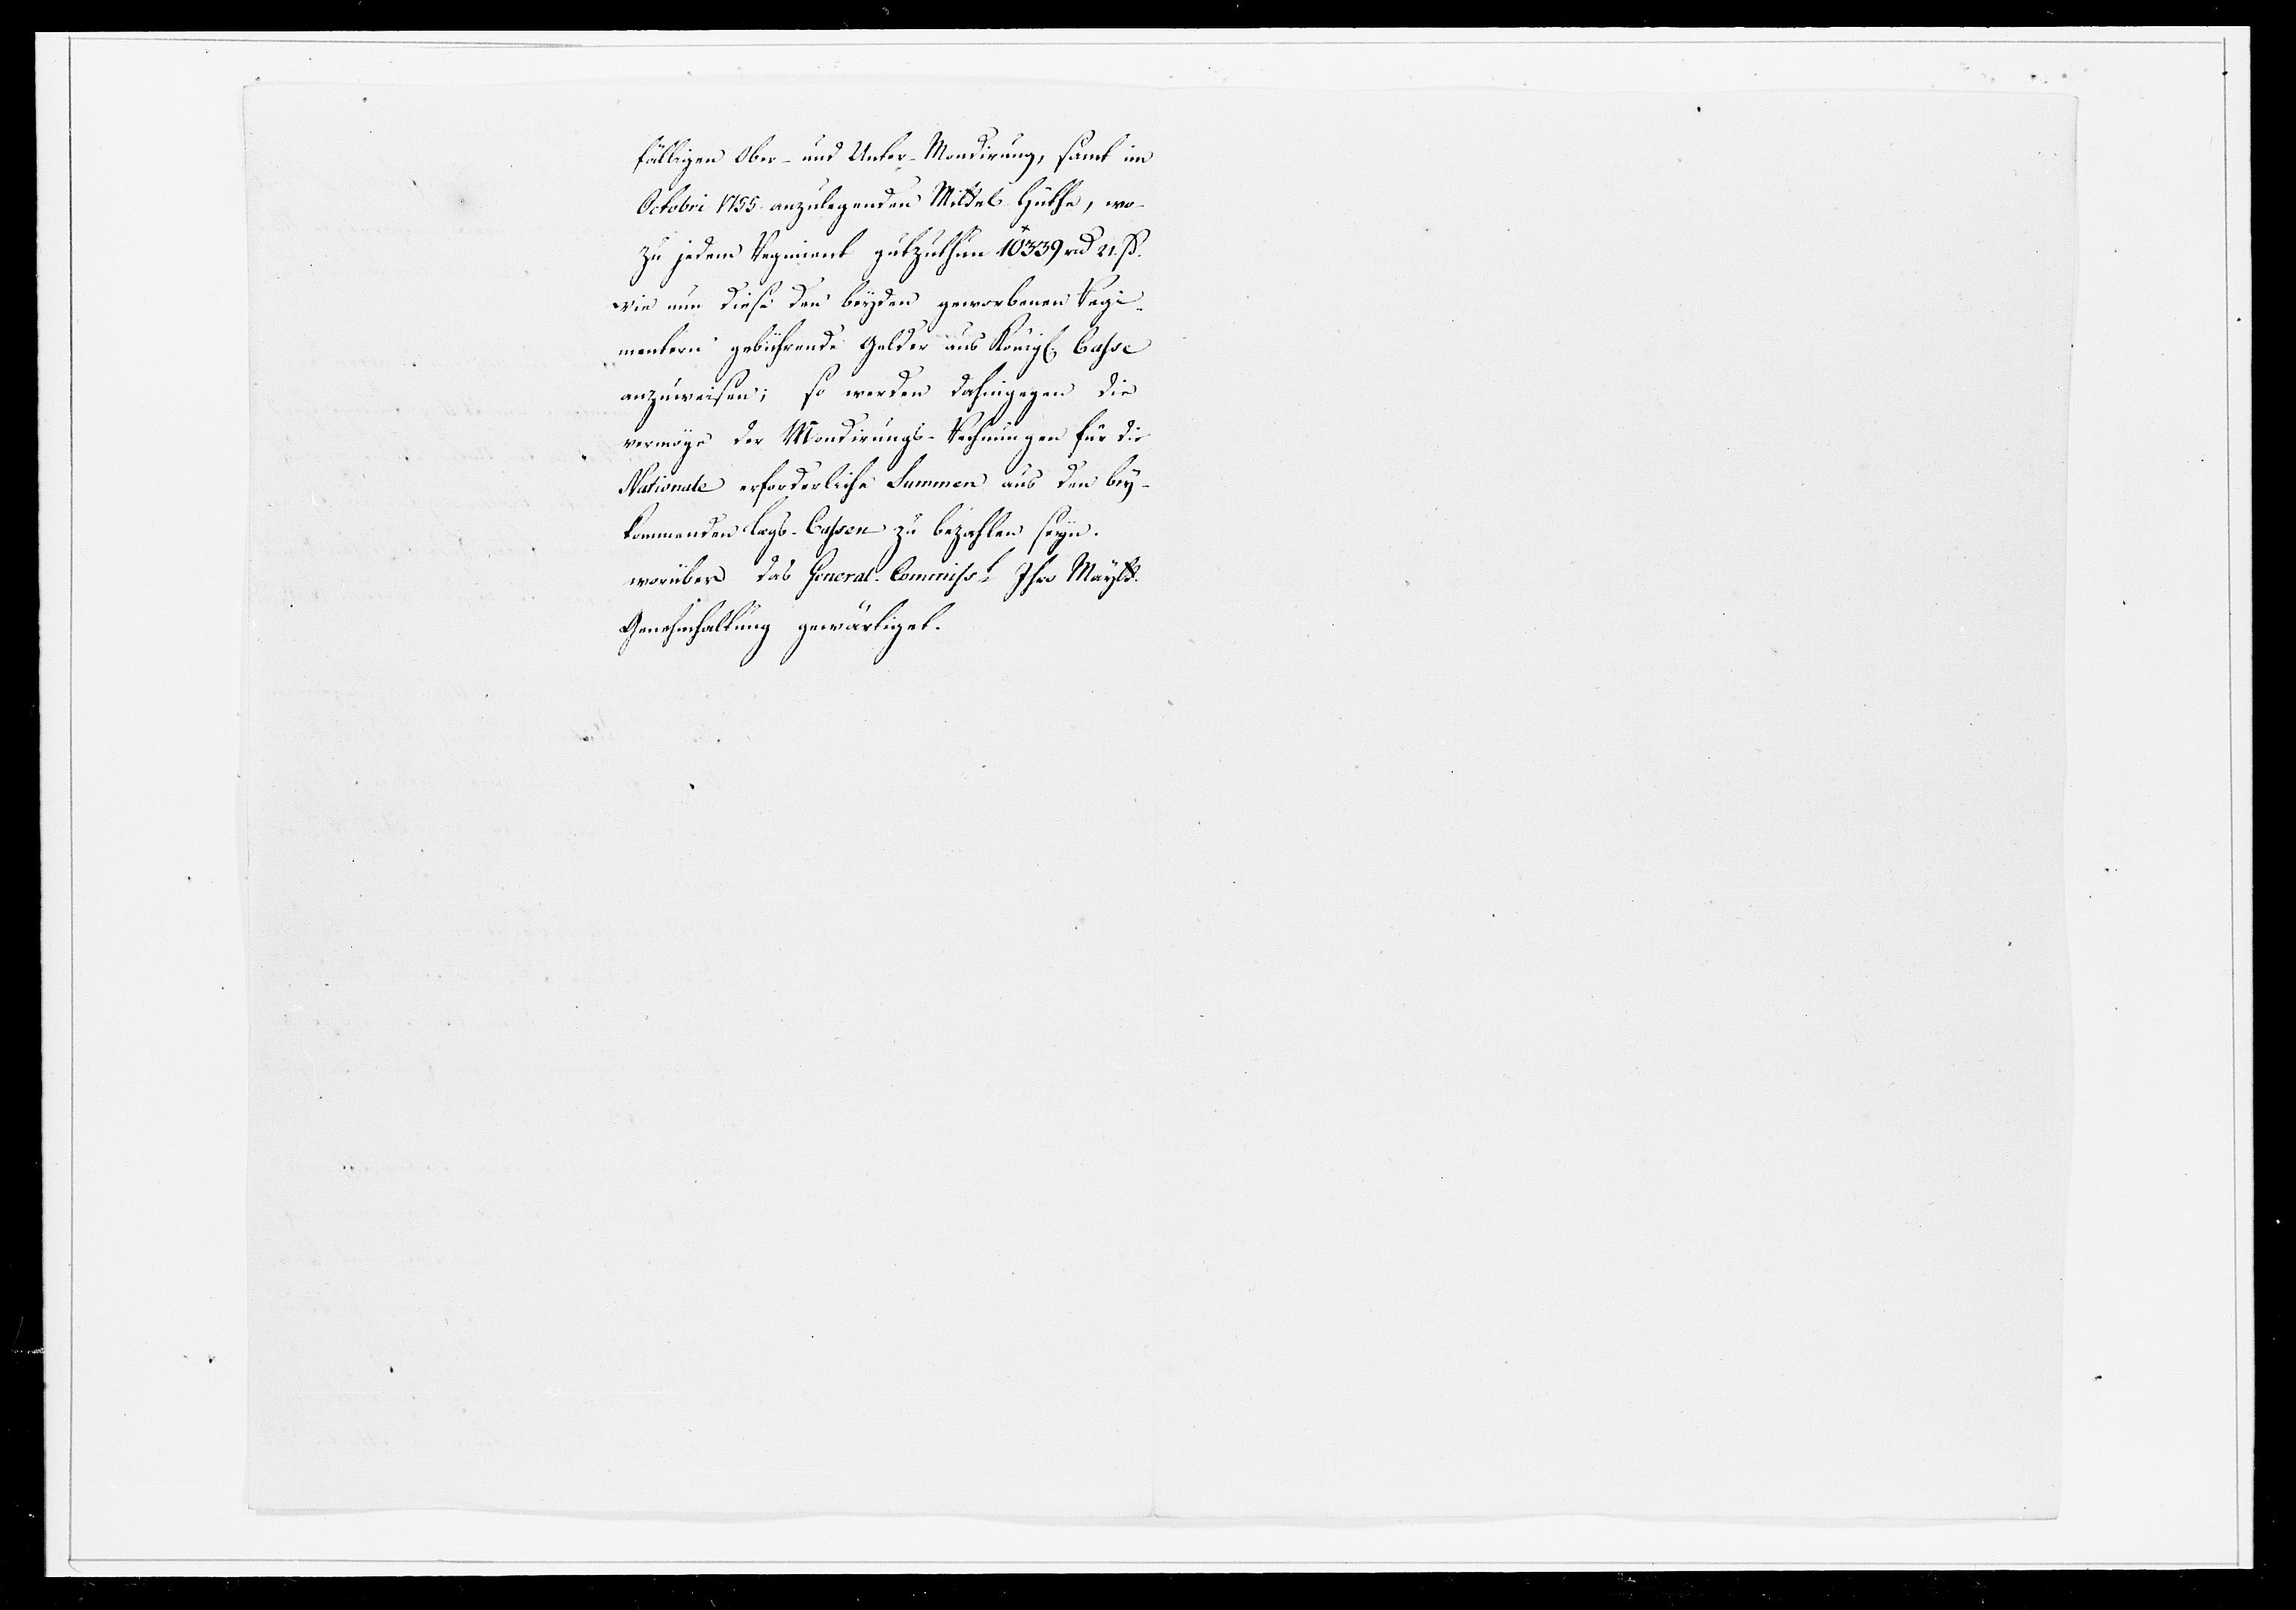 fälligen Ober- und Unter-Mondirung, samt im
Octobri 1755 anzulegenden Mittel Hüthe, wo-
zu jedem Regiment gutzuthun 10339 rd 21. ß.
wie nun diese den beyden geworbenen Regi-
mentern gebührende Gelder aus Königl. Casse
anzuweisen; so werden dahingegen die
vermöge der Mondirungs-Rechnungen für die
Nationale erforderliche Summen aus den bey-
kommenden Lægs-Cassen zu bezahlen seyn.
worüber das General-Commisst. Ihro Maytt.
Genehmhaltung gewärtiget.